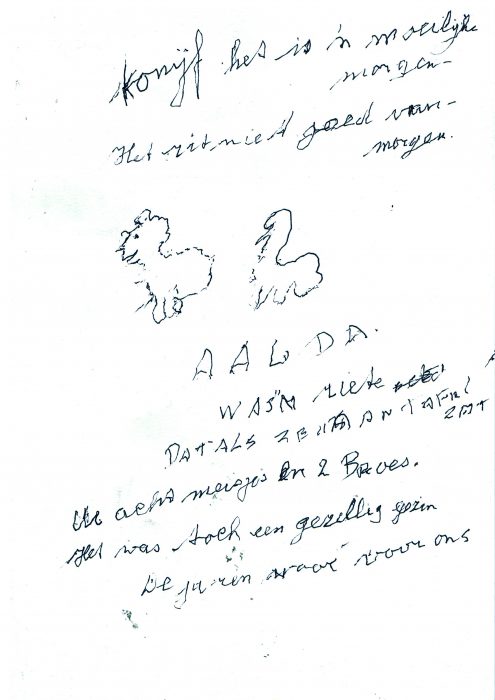 het is 'n moeilijke
morgen-
Het zit niet goed van-
morgen.
AALDA.
WAS'N
DAT ALS ZE AAN TAFEL
ZAT
acht meisjes en 2 Broes.
Het was toch een gezellig gezin
De jaren waar voor ons